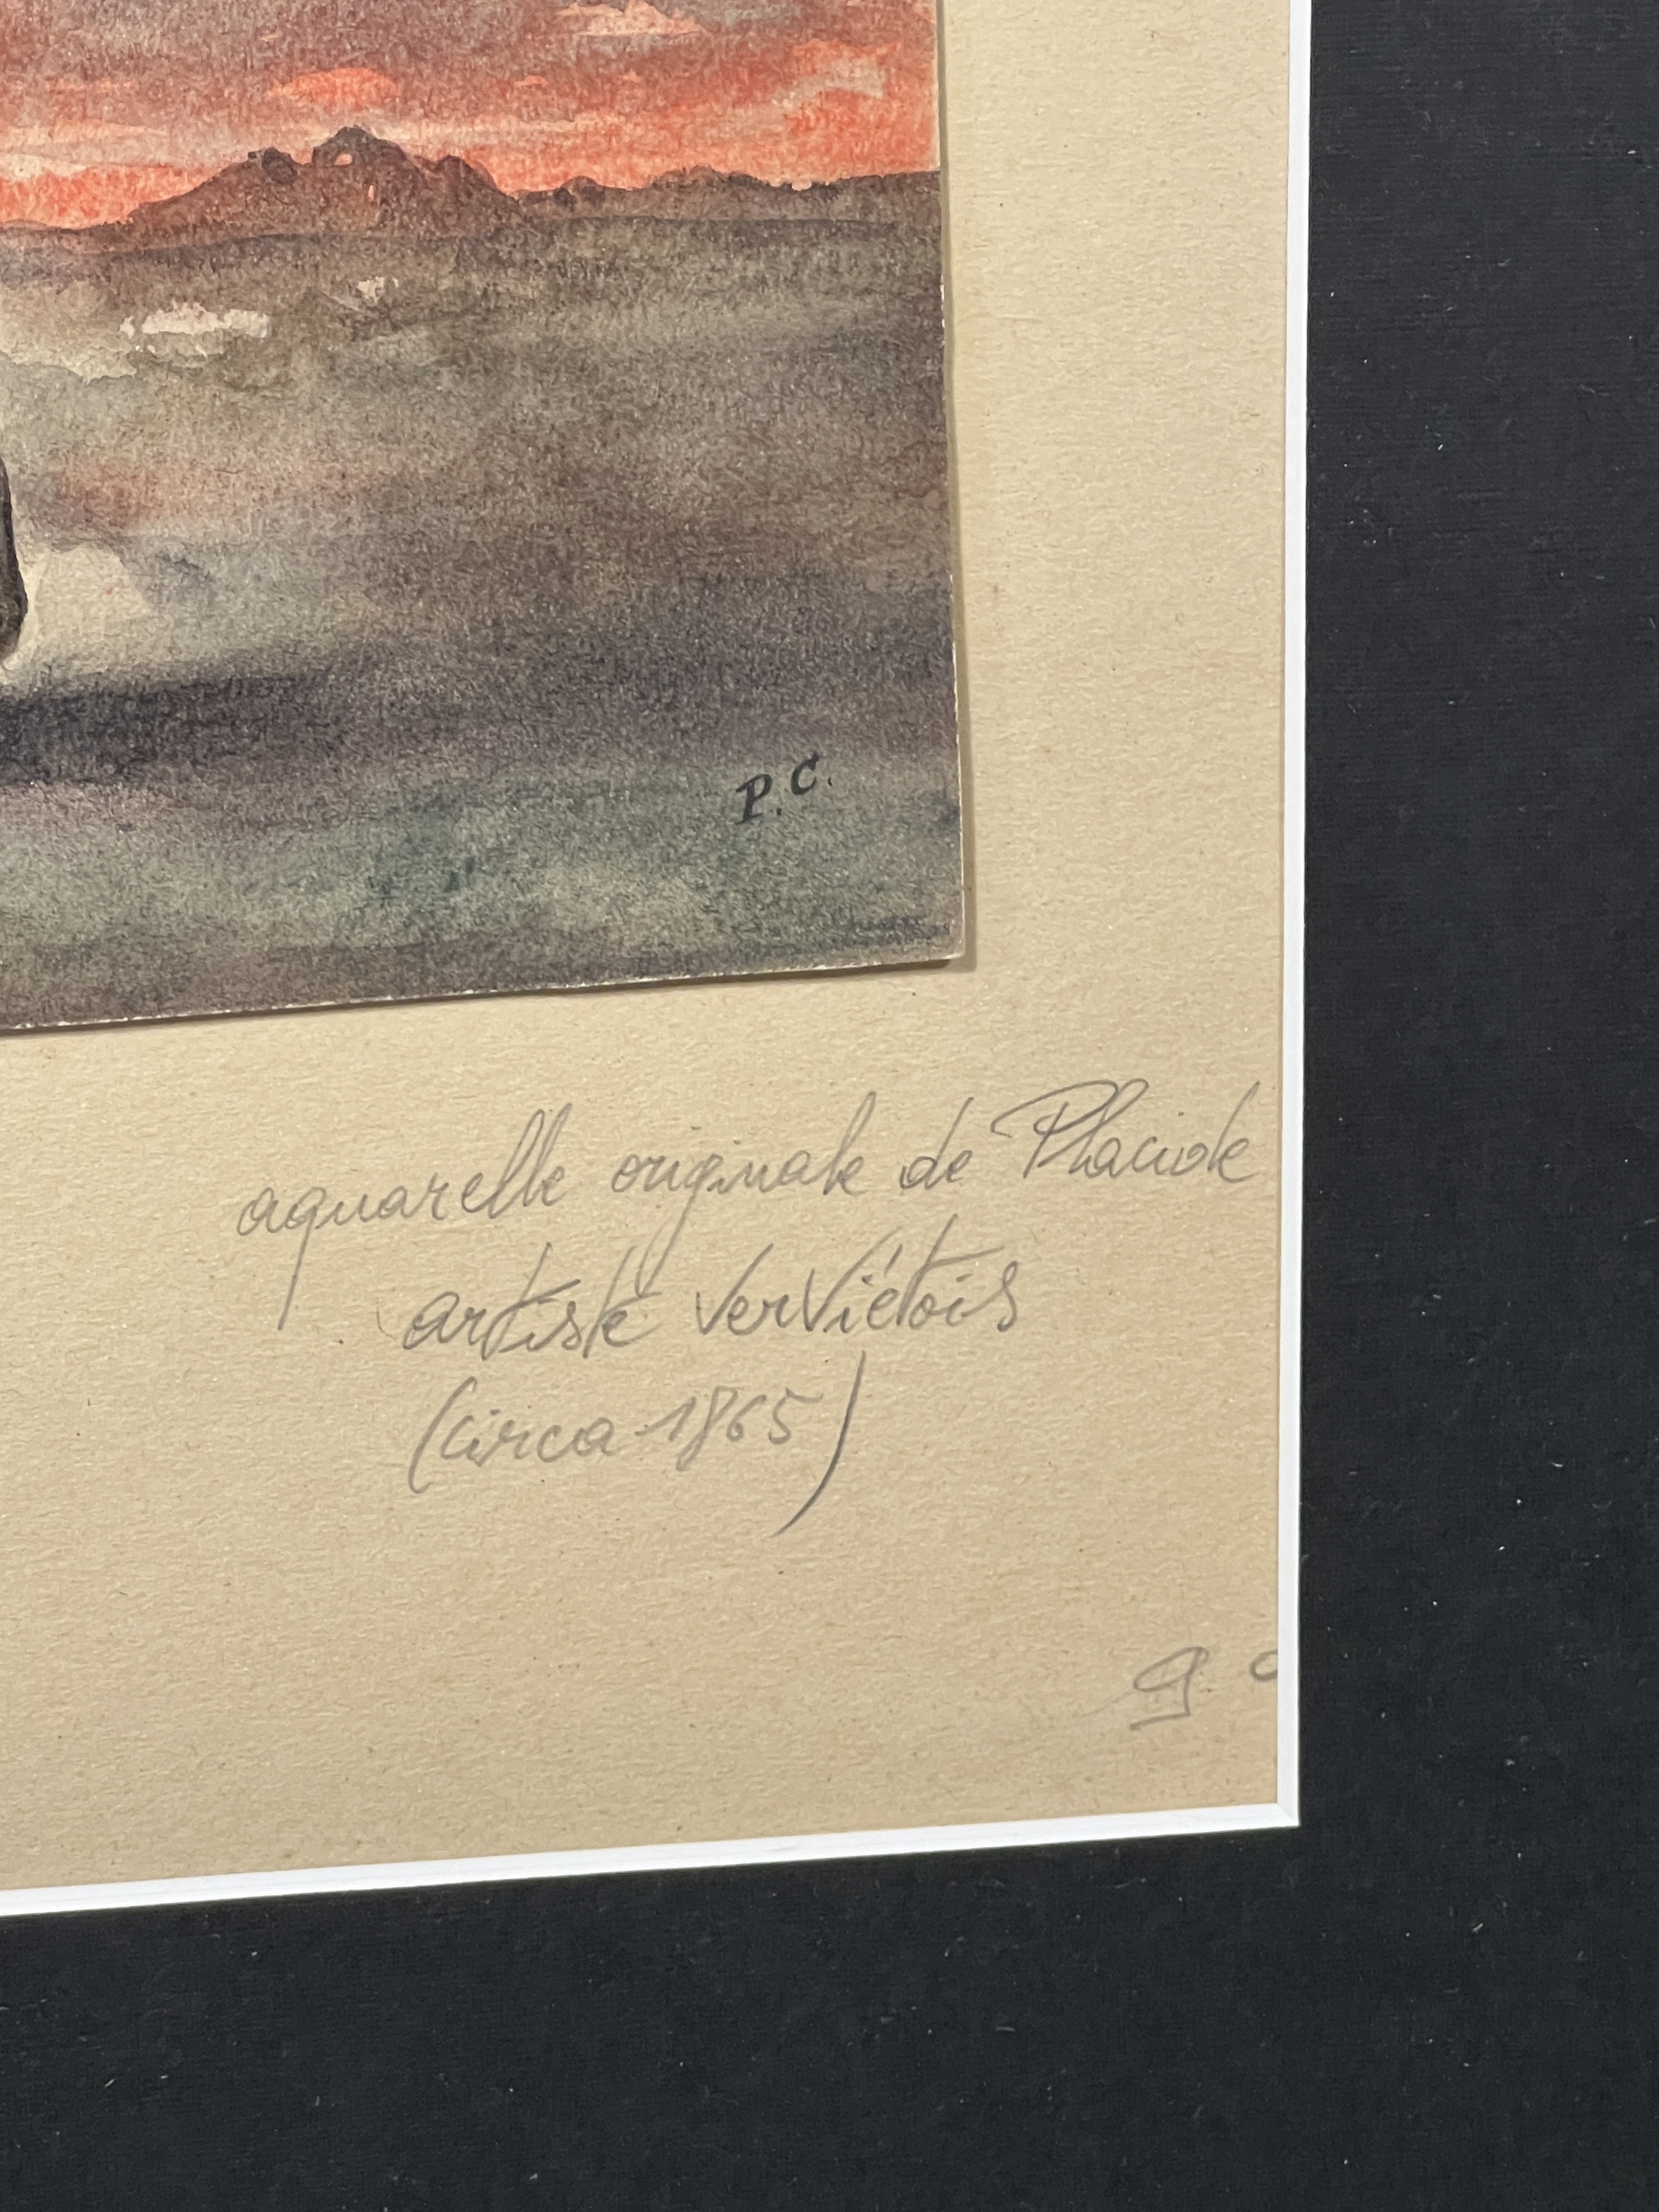 P.C.
aquarelle originale de Placide
artiste Verviétois
(circa 1865)